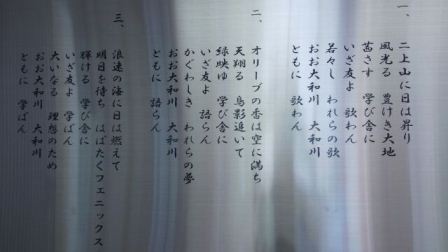 一、
二上山に日は昇り
風光る 豊けき大地
茜さす 学び舎に
いざ友よ 歌わん
若々し われらの歌
おお大和川 大和川
ともに 歌わん
二、
オリーブの香は空に満ち
天翔る 鳥影追いて
緑映ゆ 学び舎に
いざ友よ 語らん
かぐわしき われらの夢
おお大和川 大和川
ともに 語らん
三、
浪速の海に日は燃えて
明日を待ち はばたくフェニックス
輝ける 学び舎に
いざ友よ 学ばん
大いなる 理想のため
おお大和川 大和川
ともに 学ばん